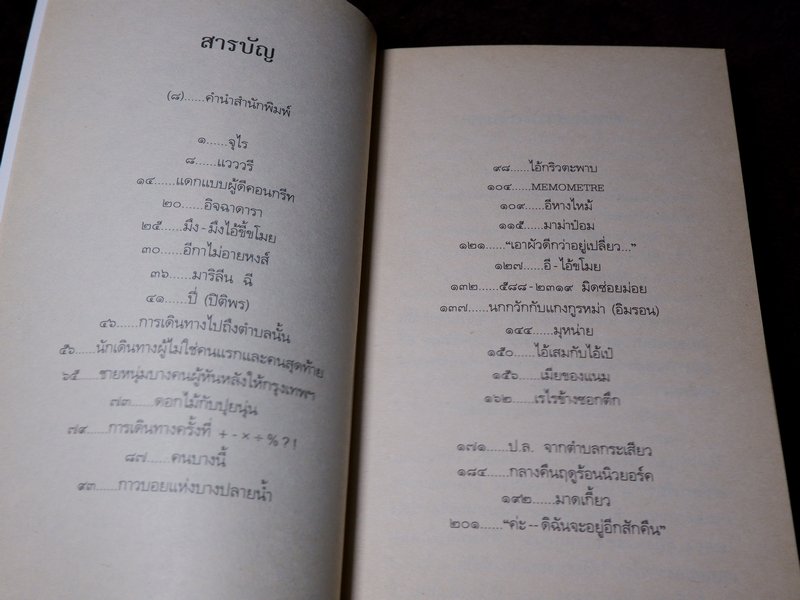 สารบัญ
(๘)......คำนำสำนักพิมพ์
๑......จุไร
๘......แวววรี
๑๔......แดกแบบผู้ดีคอนกรีท
๒๐......อิจฉาดารา
๒๕......มึง - มึงไอ้ขี้ขโมย
๓๐......อีกาไม่อายหงส์
๓๖......มาริลีน ฉี
๔๑......ปี่ (ปิติพร)
๔๖......การเดินทางไปถึงตำบลนั้น
๕๖......นักเดินทางผู้ไม่ใช่คนแรกและคนสุดท้าย
๖๕......ชายหนุ่มบางคนผู้หันหลังให้กรุงเทพฯ
๗๓......ดอกไม้กับปุยนุ่น
๗๙......การเดินทางครั้งที่ + - × ÷ % ? !
๘๗......คนบางนี้
๙๓......กาวบอยแห่งบางปลายน้ำ
๙๘......ไอ้กริวตะพาบ
๑๐๔......MEMOMETRE
๑๐๙......อีหางไหม้
๑๑๕......มาม่าป๋อม
๑๒๑......“เอาผัวดีกว่าอยู่เปลี่ยว...”
๑๒๗......อี - ไอ้ขโมย
๑๓๒......๕๘๘ - ๒๓๑๙ มิดซ่อยม่อย
๑๓๗......นกกวักกับแกงกูรหม่า (อิมรอน)
๑๔๔......มุหน่าย
๑๕๐......ไอ้เสมกับไอ้เป๋
๑๕๖......เมียของแนม
๑๖๒......เรไรข้างซอกตึก
๑๗๑......ป.ล. จากตำบลกระเสียว
๑๘๔......กลางคืนฤดูร้อนนิวยอร์ค
๑๙๒......มาดเกี้ยว
๒๐๑......“ค่ะ -- ดิฉันจะอยู่อีกสักคืน”